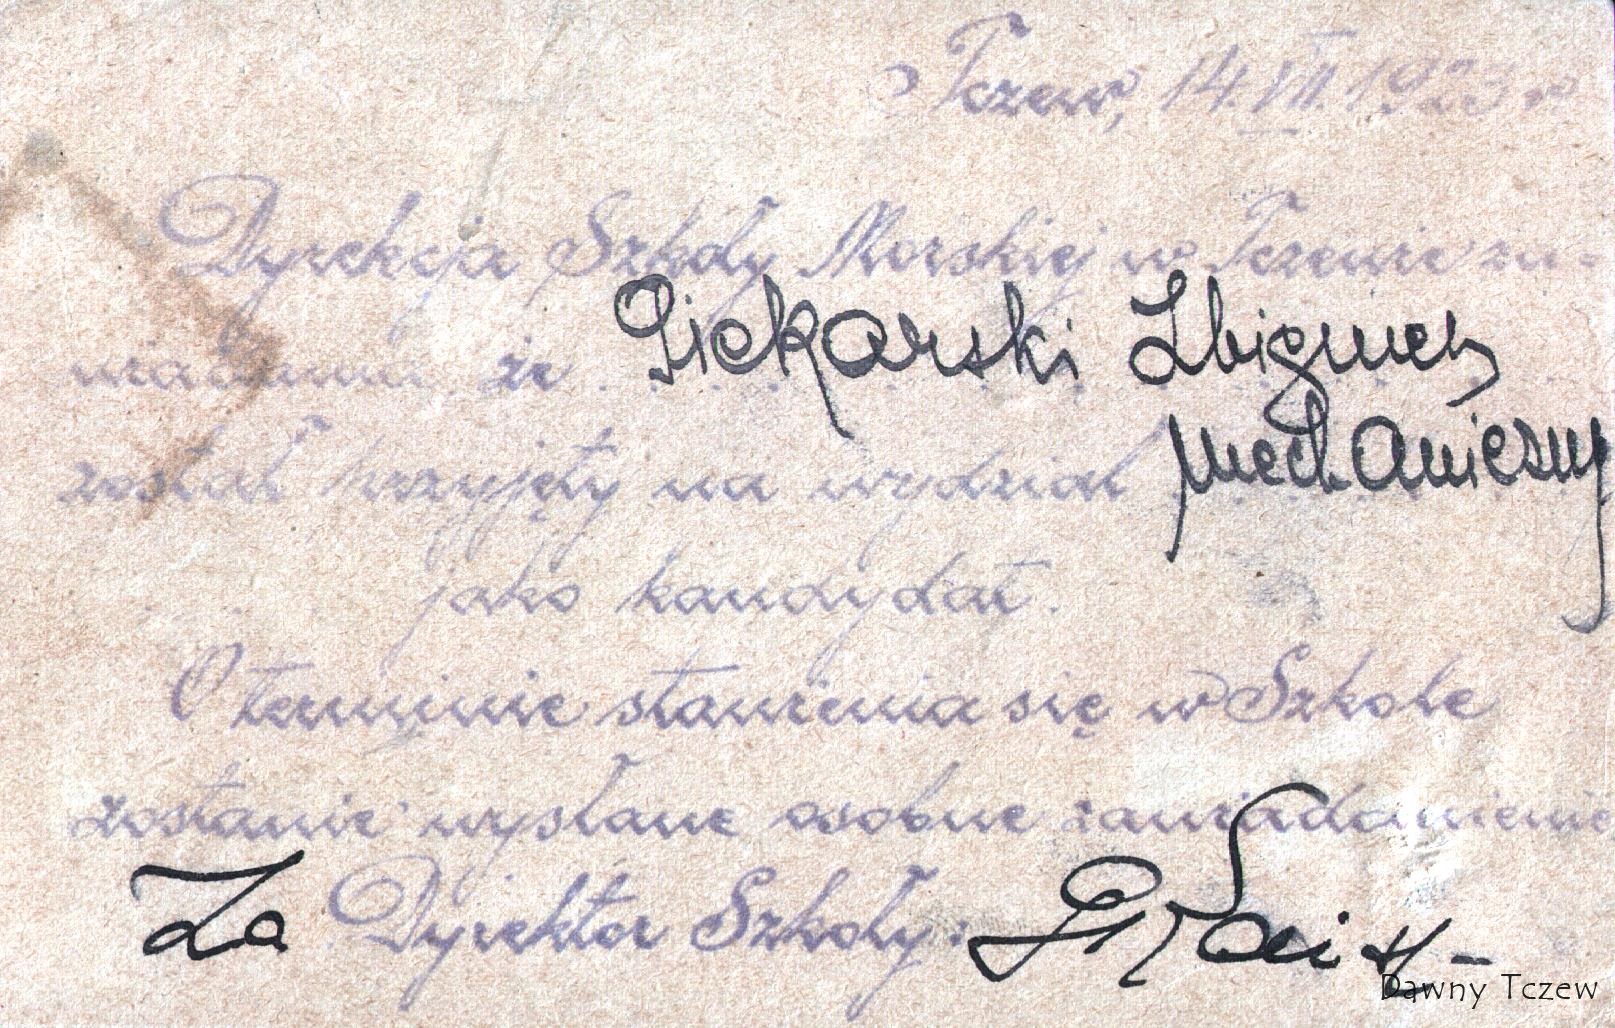 Tczew, 14.VII.1923 r
Dyrekcja Szkoły Morskiej w Tczewie za-
wiadamia że Piekarski Zbigniew
został przyjęty na wydział mechaniczny
jako kandydat.
O terminie stawienia się w Szkole
zostanie wysłane osobne zawiadomienie
Za Dyrektor Szkoły:
Dawny Tczew